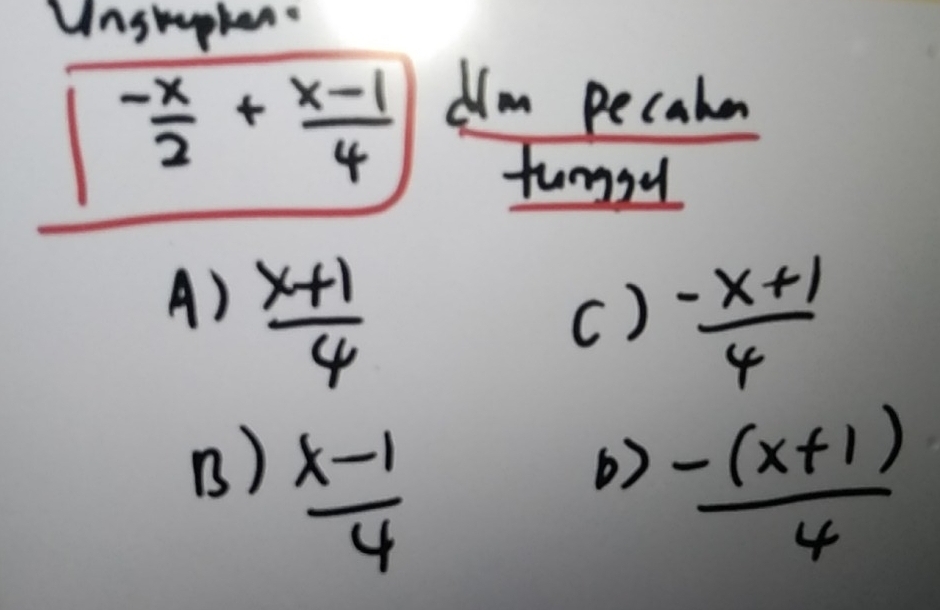 Ungkapkan:
-x/2 + x-1/4 dlm pecahan
tunggal
A) x+1/4
C) -x+1/4
B) x-1/4
D) -(x+1)/4